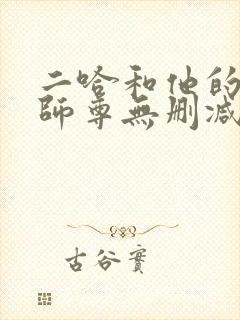 二哈和他的
師尊無刪減
古谷實